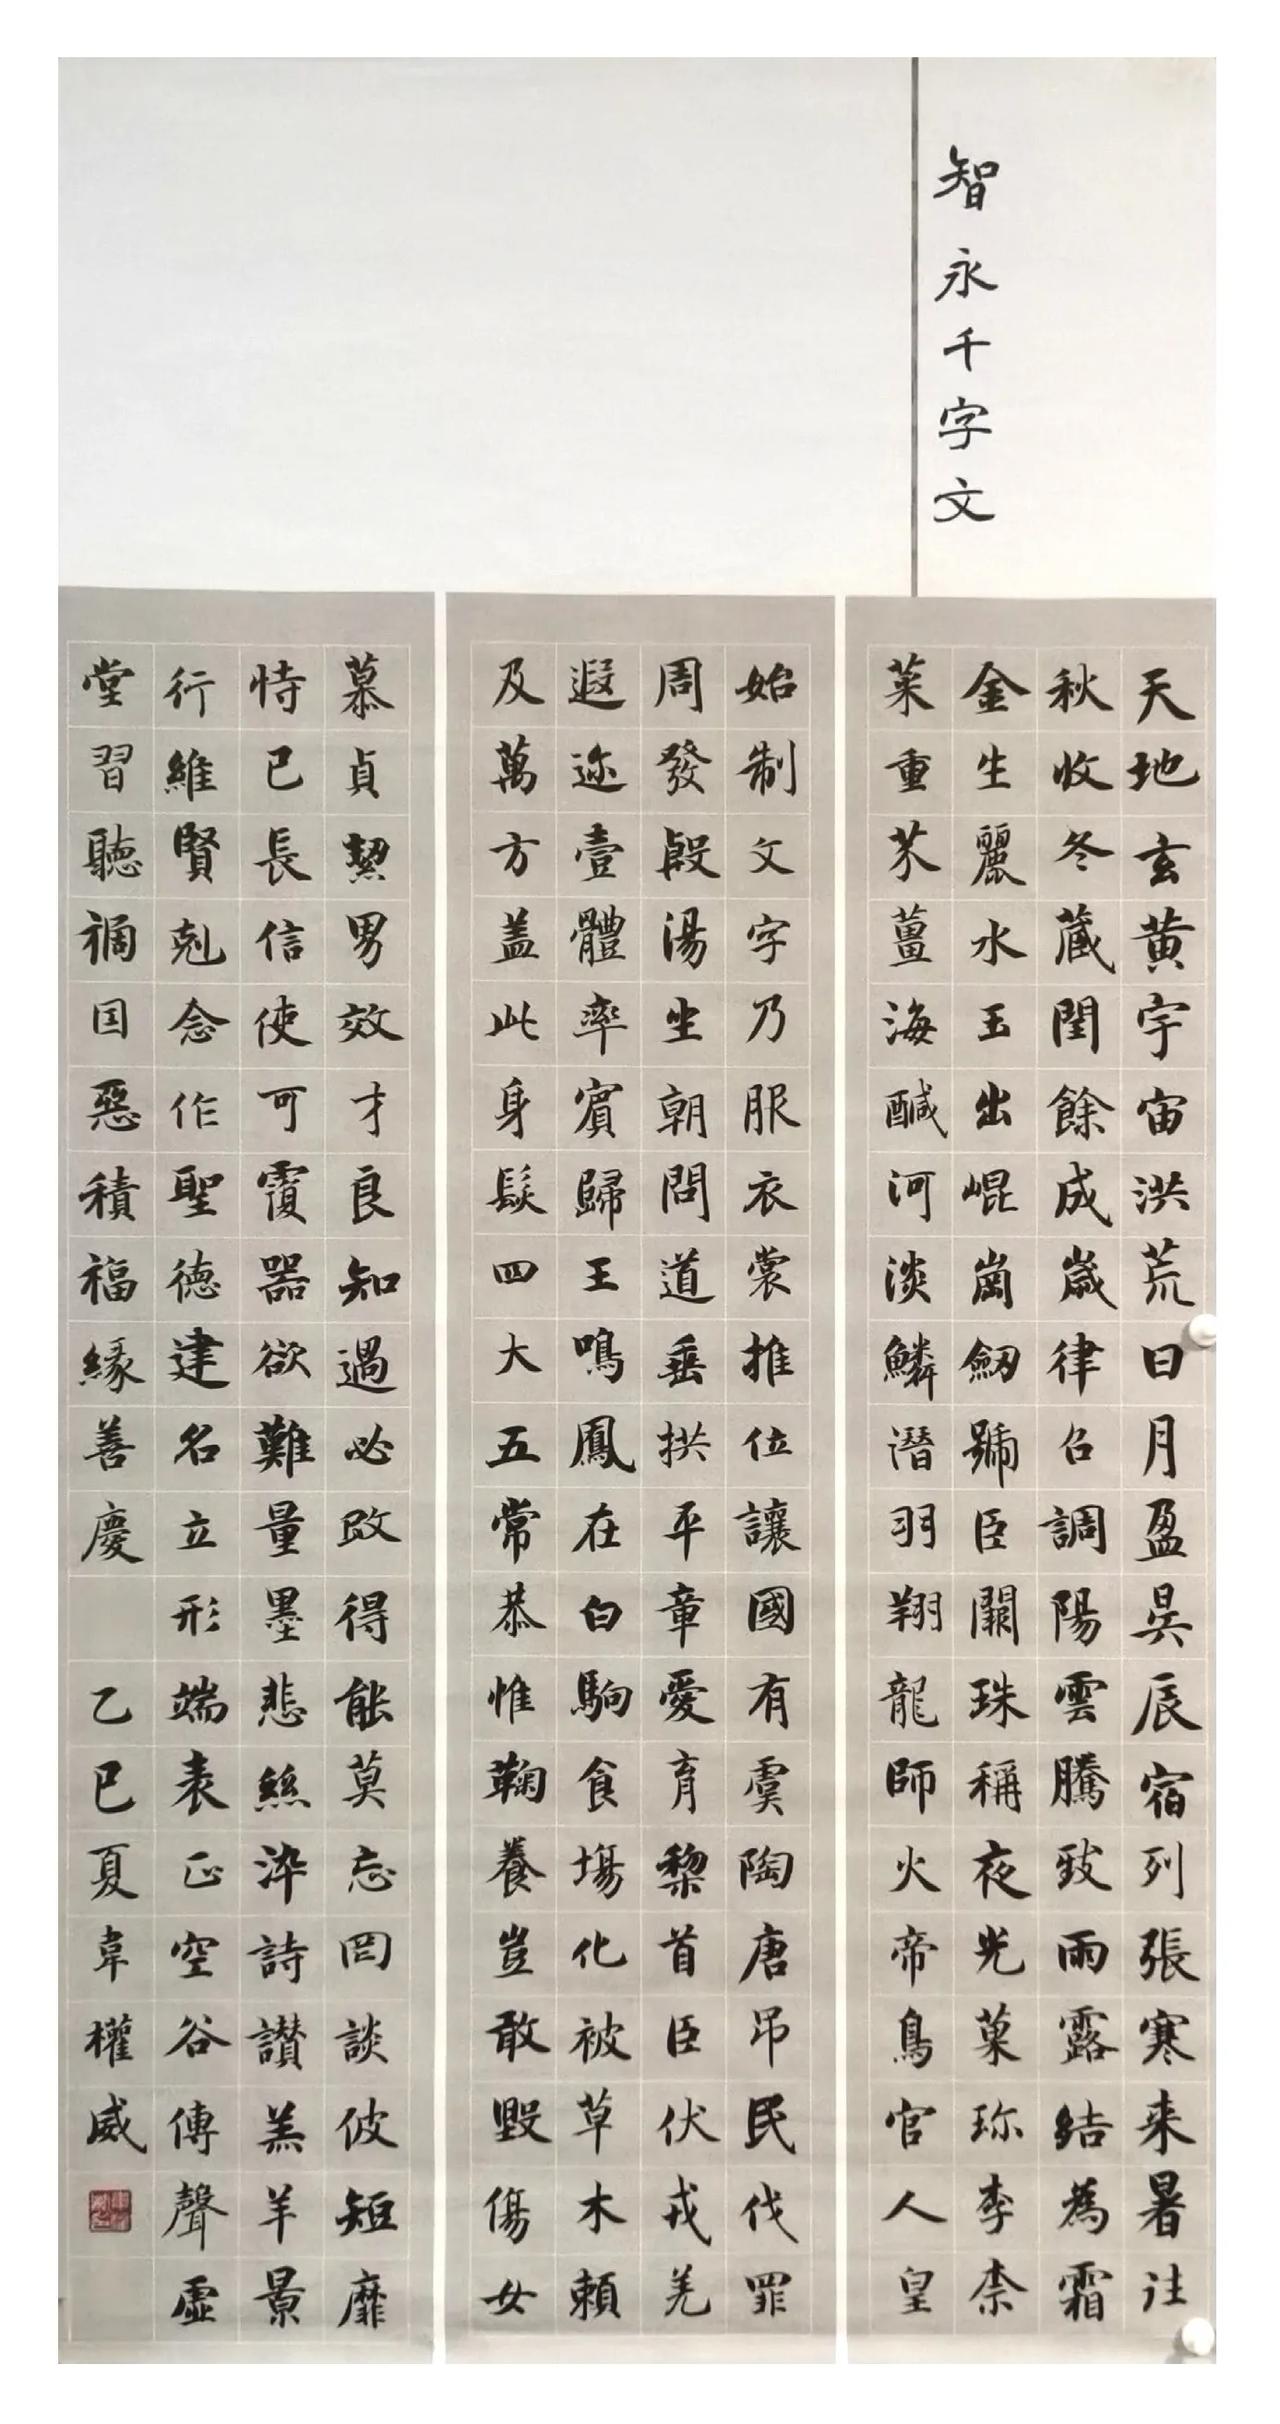 智永千字文
天地玄黄宇宙洪荒日月盈昃辰宿列張寒来暑往
秋收冬蔵閏餘成歲律召調陽雲騰致雨露結為霜
金生麗水玉出崐崗劒號臣闕珠稱夜光菓珎李柰
菜重芥薑海醎河淡鱗潛羽翔龍師火帝鳥官人皇
始制文字乃服衣裳推位讓國有虞陶唐吊民伐罪
周發殷湯坐朝問道垂拱平章愛育黎首臣伏戎羌
遐迩壹體率賓歸王鳴鳳在白駒食場化被草木賴
及萬方盖此身髮四大五常恭惟鞠養豈敢毀傷女
慕貞絜男效才良知過必改得能莫忘罔談彼短靡
恃己長信使可覆器欲難量墨悲絲染詩讃羔羊景
行維賢剋念作聖德建名立形端表正空谷傳聲虛
堂習聽禍因惡積福緣善慶
乙巳夏韋權威